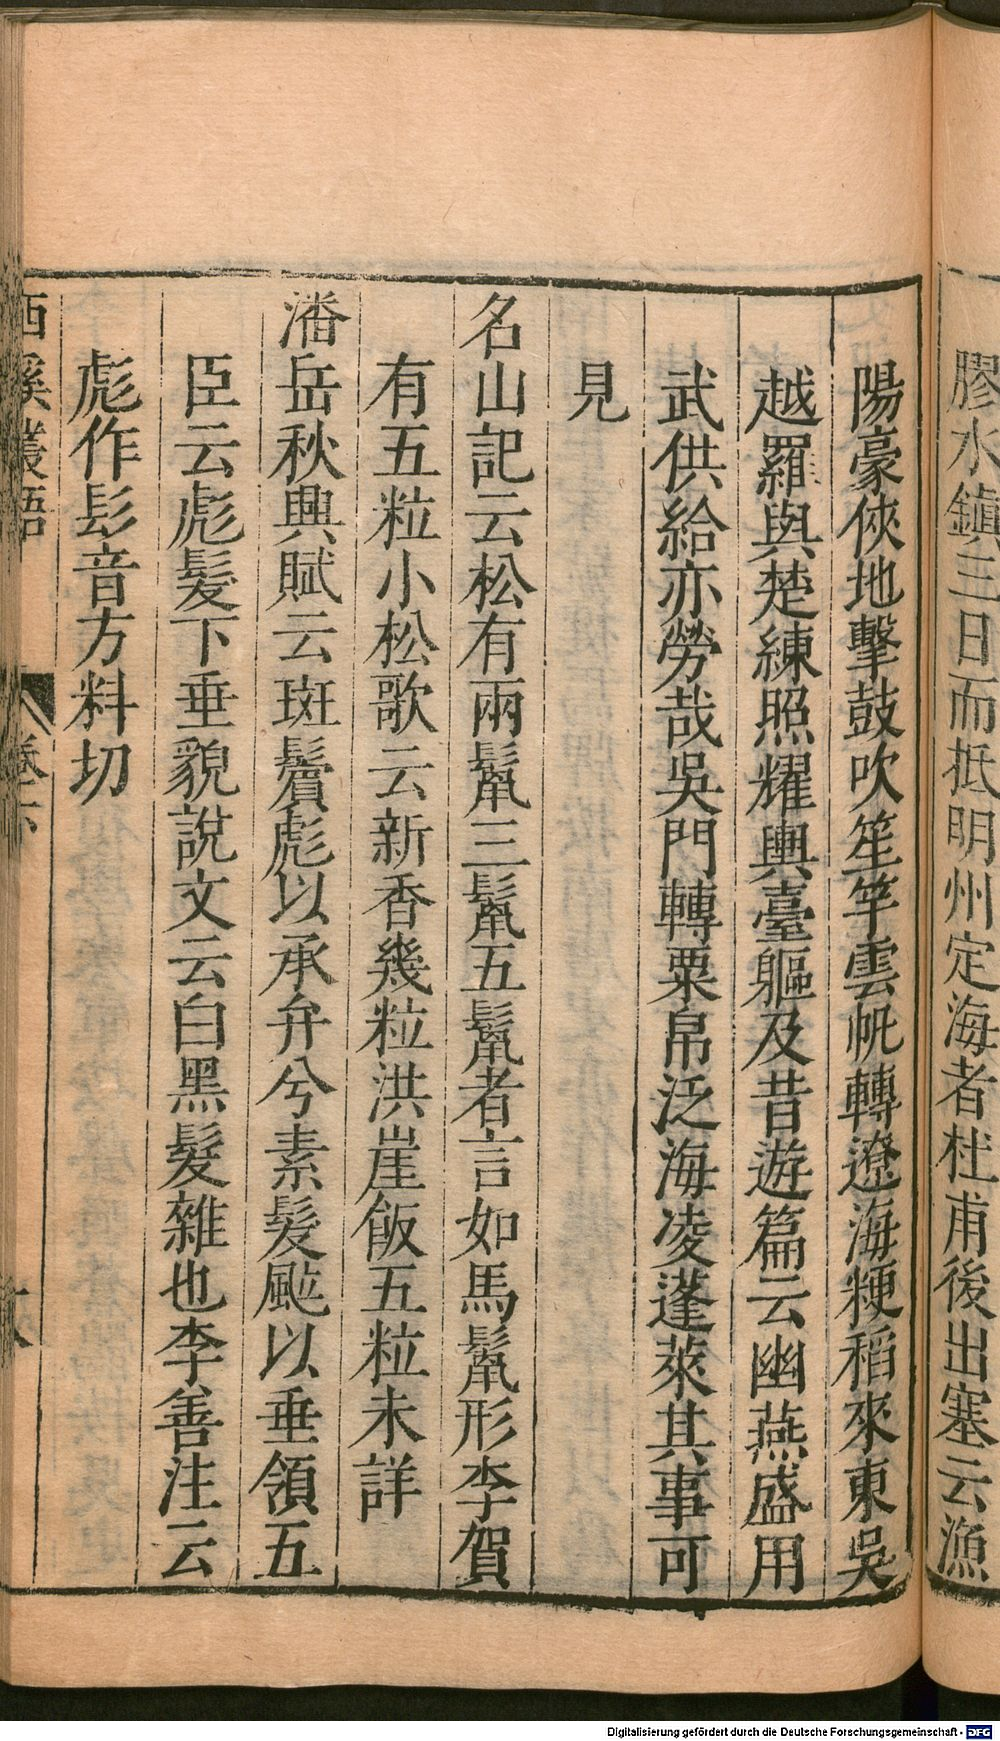 膠水鎮三日而抵明州定海者杜甫後出塞云漁
陽豪俠地擊鼓吹笙竽雲帆轉遼海粳稻來東吳
越羅與楚練照耀輿臺軀及昔遊篇云幽燕盛用
武供給亦勞哉吳門轉粟帛泛海凌蓬萊其事可
見
名山記云松有兩鬣三鬣五鬣者言如馬鬣形李賀
有五粒小松歌云新香幾粒洪崖飯五粒未詳
潘岳秋興賦云斑鬢彪以承弁兮素髮颭以垂領五
臣云彪髮下垂貌說文云白黑髮雜也李善注云
彪作髟音方料切
西溪叢語 卷下
Digitalisierung gefördert durch die Deutsche Forschungsgemeinschaft - DFG